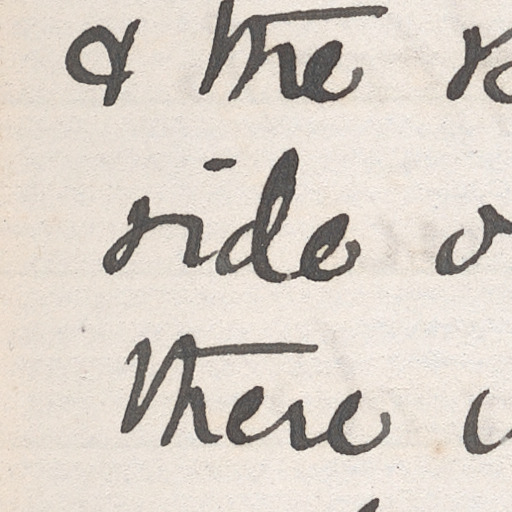 & the
side
there